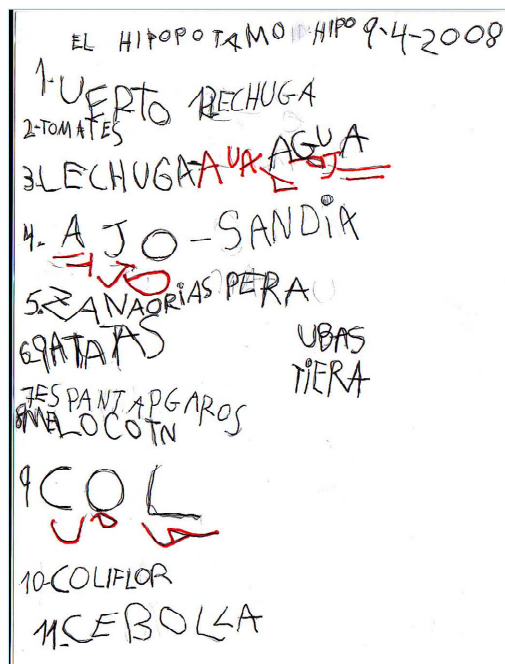 EL HIPOPOTAMO HIPO 9-4-2008
1-UERTO LECHUGA
2-TOMATES
3-LECHUGA-AUA AGUA
4. AJO - SANDIA
5.ZANAORIAS PERA
6 PATATAS UBAS
TIERA
7ESPANTAPGAROS
8MELOCOTN
9 COL
10-COLIFLOR
11.CEBOLLA